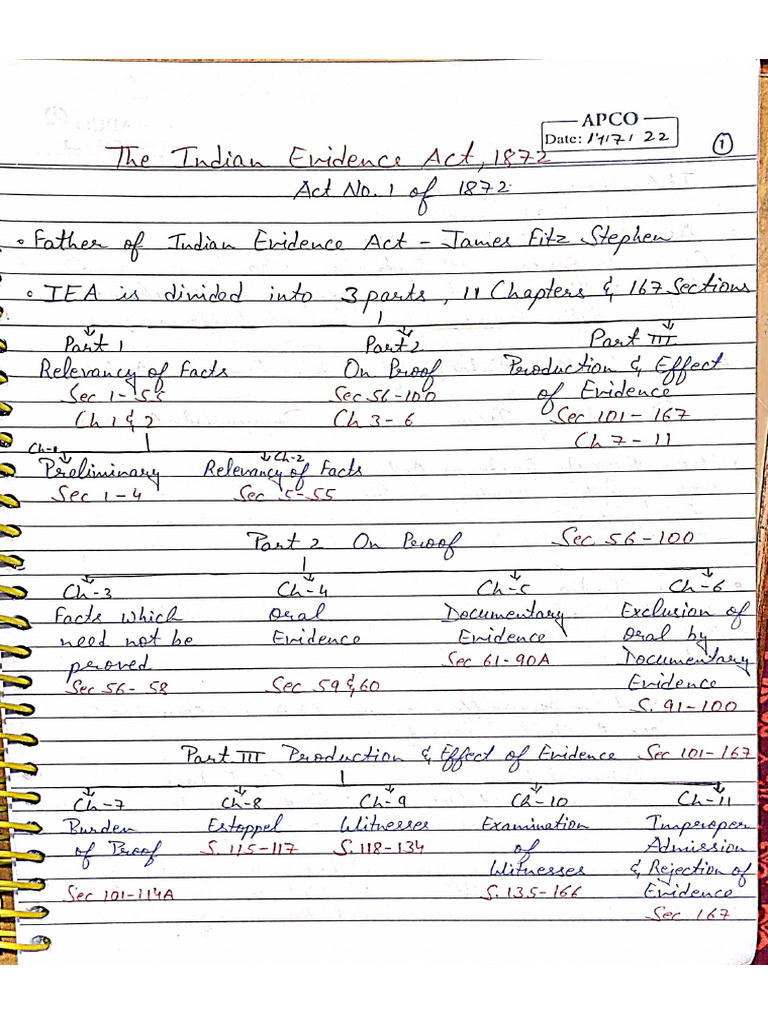 APCO
Date: 14/7/22
①
The Indian Evidence Act, 1872
Act No. 1 of 1872.
• Father of Indian Evidence Act - James Fitz Stephen
• IEA is divided into 3 parts, 11 Chapters & 167 Sections
Part 1 Part 2 Part III
Relevancy of Facts On Proof Production & Effect
Sec 1-55 Sec 56-100 of Evidence
Ch 1 & 2 Ch 3-6 Sec 101-167
Ch 7-11
Ch-1 Ch-2
Preliminary Relevancy of Facts
Sec 1-4 Sec 5-55
Part 2 On Proof Sec 56-100
Ch-3 Ch-4 Ch-5 Ch-6
Facts which Oral Documentary Exclusion of
need not be Evidence Evidence Oral by
proved Sec 61-90A Documentary
Sec 56-58 Sec 59 & 60 Evidence
S. 91-100
Part III Production & Effect of Evidence Sec 101-167
Ch-7 Ch-8 Ch-9 Ch-10 Ch-11
Burden Estoppel Witnesses Examination Improper
of Proof S. 115-117 S. 118-134 of Admission
Witnesses & Rejection of
Sec 101-114A S. 135-166 Evidence
Sec 167